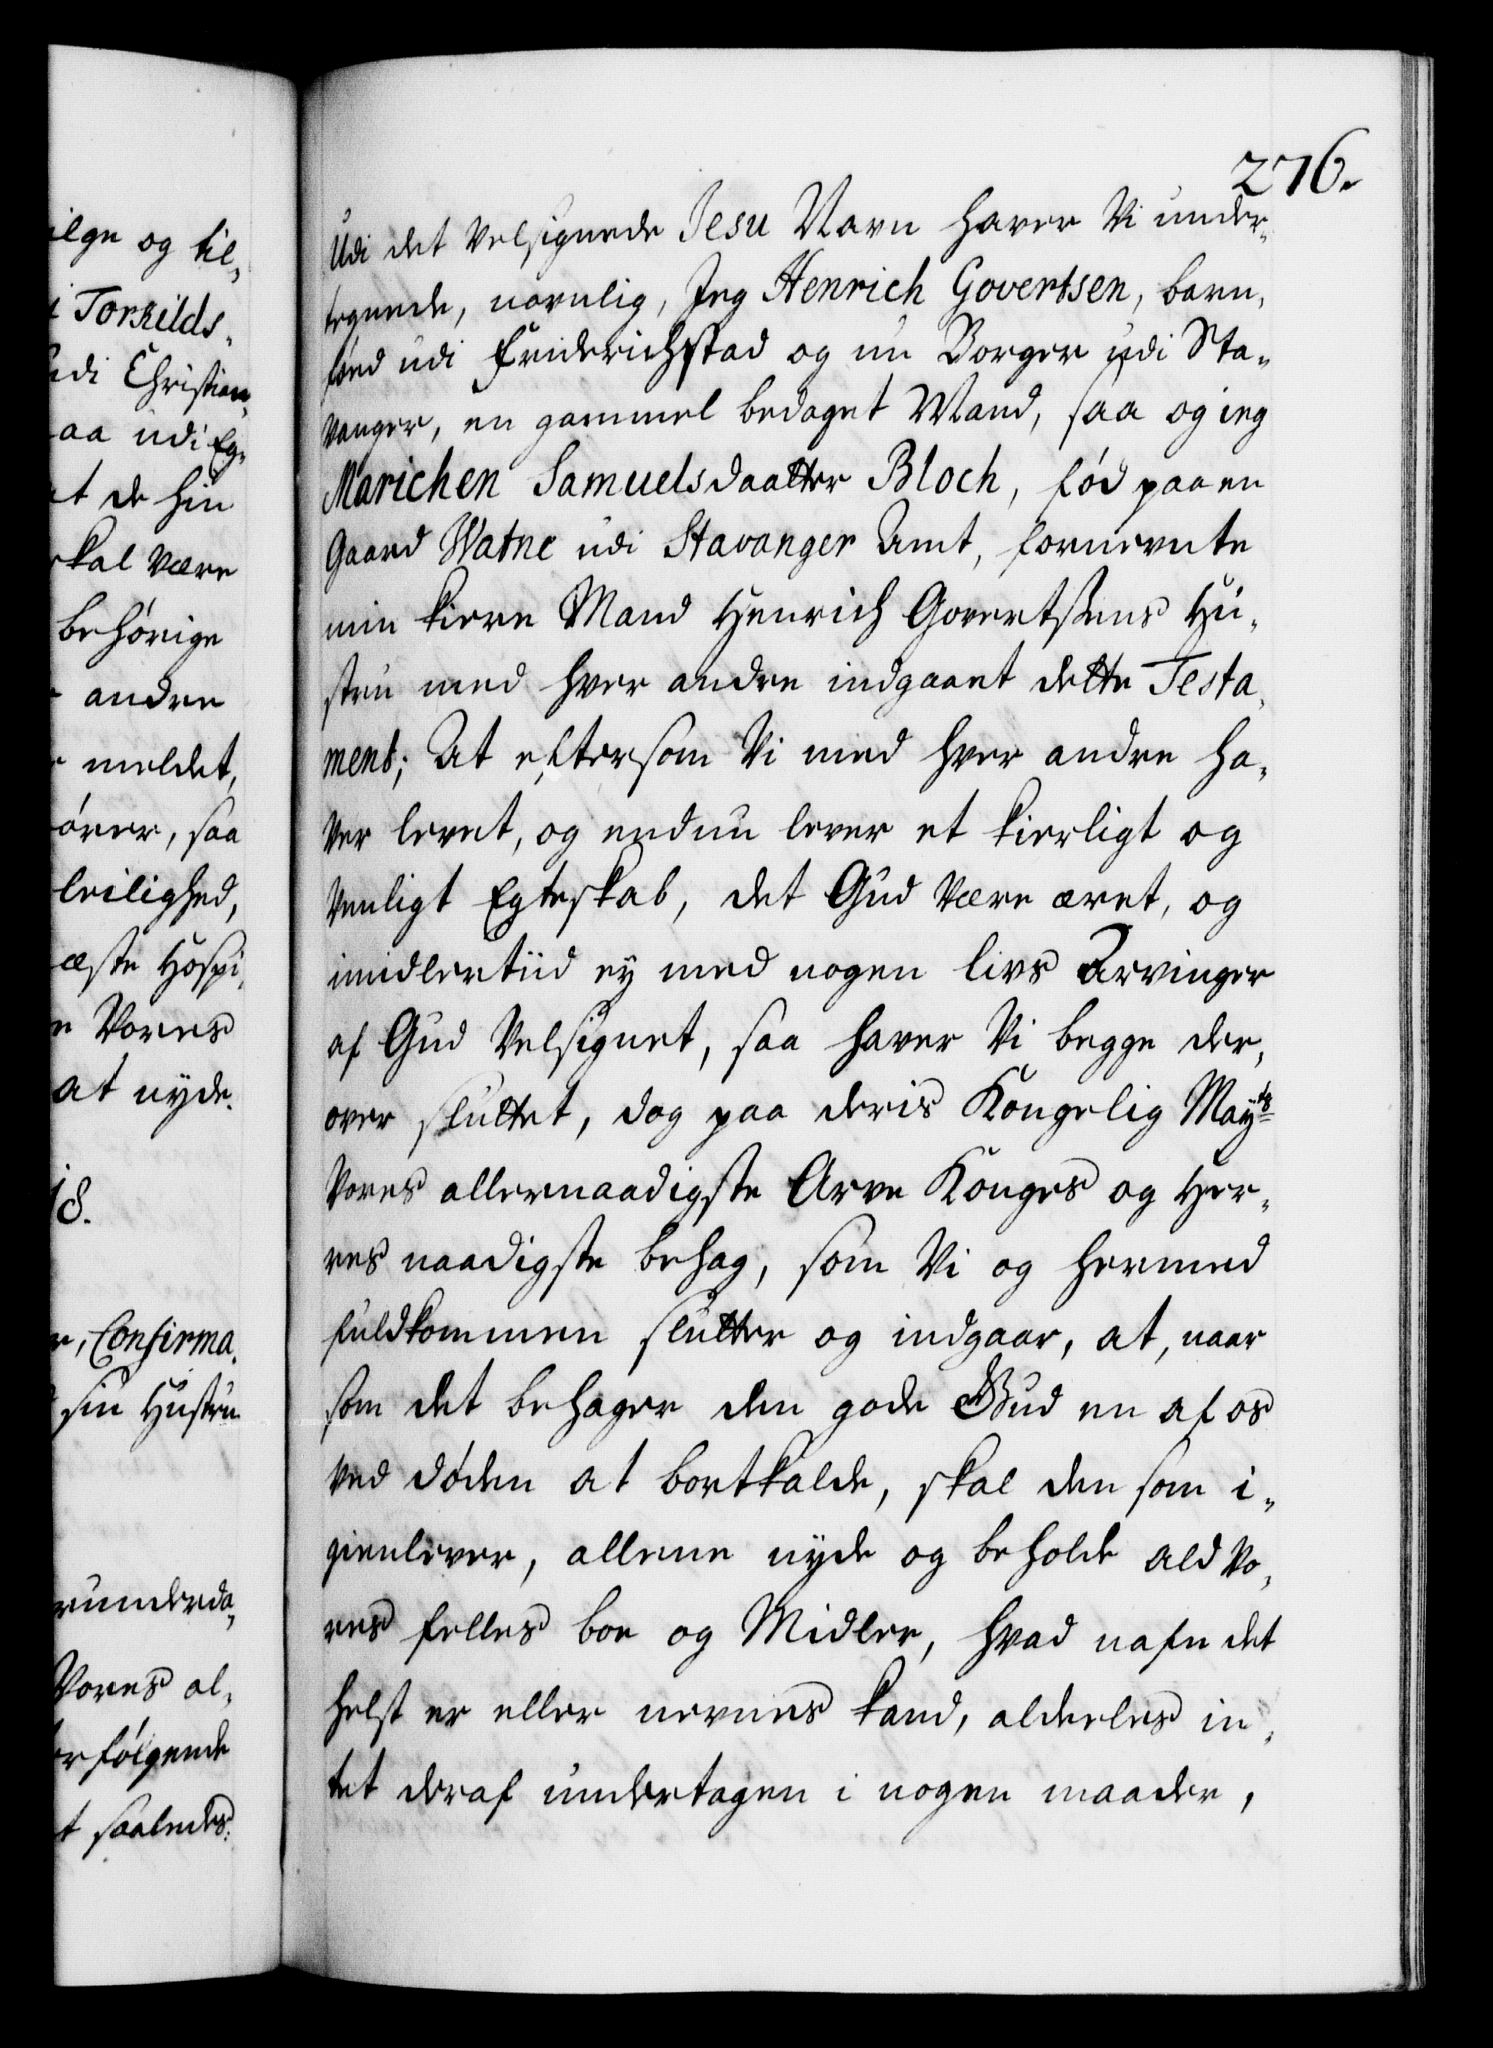 276.
Udi det Velsignede Jesu Navn haver Vi under-
tegnede, navnlig, Jeg Henrich Govertsen, barn-
fød udi Friderichstad og nu Borger udi Sta-
vanger, en gammel bedaget Mand, saa og ieg
Marichen Samuelsdaatter Bloch, fød paa en
Gaard Watne udi Stavanger Amt, fornevnte
min kiere Mand Henrich Govertsens Hu-
stru med hver andre indgaaet dette Testa-
ment; At eftersom Vi med hver andre ha-
ver levet, og endnu lever et kierligt og
venligt Egteskab, det Gud være æret, og
imidlertiid ey med nogen livs Arvinger
af Gud Velsignet, saa haver Vi begge der-
over sluttet, dog paa deris Kongelig Mayts
Vores allernaadigste Arve Konges og Her-
res naadigste behag, som Vi og hermed
fuldkommen slutter og indgaar, at, naar
som det behager den gode Gud en af os
ved døden at bortkalde, skal den som i-
gienlever, allene nyde og beholde ald Vo-
res felles boe og Midler, hvad nafn det
helst er eller nevnes kand, aldeeles in-
tet deraf undertagen i nogen maader,
ilge og til-
i Torkilds-
udi Christian-
aa udi Eg-
at de hin
skal være
behørige
andre
meldet,
ører, saa
leilighed,
æste Hospi-
Vores
at nyde.
18.
r, Confirma-
sin Hustru
runderda-
Vores al-
rfølgende
t saaledes: